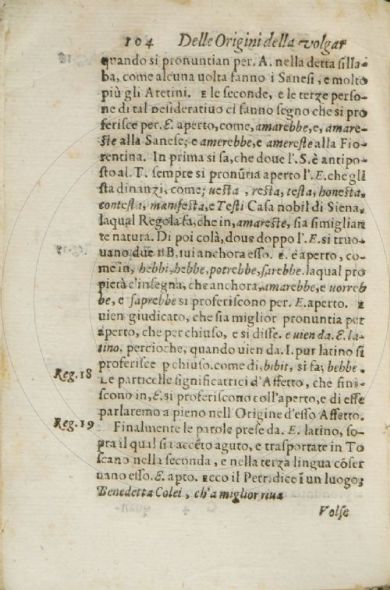 104 Delle Origini della volgar
quando si pronuntian per. A. nella detta silla-
ba, come alcuna uolta fanno i Sanesi, e molto
più gli Aretini. E le seconde, e le terze perso-
ne di tal Desideratiuo ci fanno segno che si pro
ferisce per. E. aperto, come, amarebbe, e, amare-
ste alla Sanese; e amerebbe, e amereste alla Fio-
rentina. In prima si sa, che doue l'. S. è antipo-
sto al. T. sempre si pronũtia aperto l'. E. che gli
sta dinanzi, come; uesta, resta, testa, honesta,
contesta, manifesta, e Testi Casa nobil di Siena,
laqual Regola fa, che in, amareste, sia simiglian
te natura. Di poi colà, doue doppo l'. E. si truo-
uano due BB. iui anchora esso. E. è aperto, co-
me in, hebbi, hebbe, potrebbe, sarebbe. laqual pro
pietà c'insegna, che anchora, amarebbe, e uorreb
be, e saprebbe si proferiscono per. E. aperto. E
uien giudicato, che sia miglior pronuntia per
aperto, che per chiuso, e si disse. e uien da. E. la-
tino, percioche, quando uien da. I. pur latino si
proferisce p chiuso. come di, bibit, si fa, bebbe.
Reg. 18 Le particelle significatrici d'Affetto, che fini-
scono in, E. si proferiscono coll'aperto, e di esse
parlaremo a pieno nell'Origine d'esso Affetto.
Reg. 19 Finalmente le parole prese da. E. latino, so-
pra il qual sia accẽto aguto, e trasportate in To
scano nella seconda, e nella terza lingua cõser
uano esso. E. apto. Ecco il Petr. dice ĩ un luogo;
Benedetta Colei, ch'a miglior riua
Volse